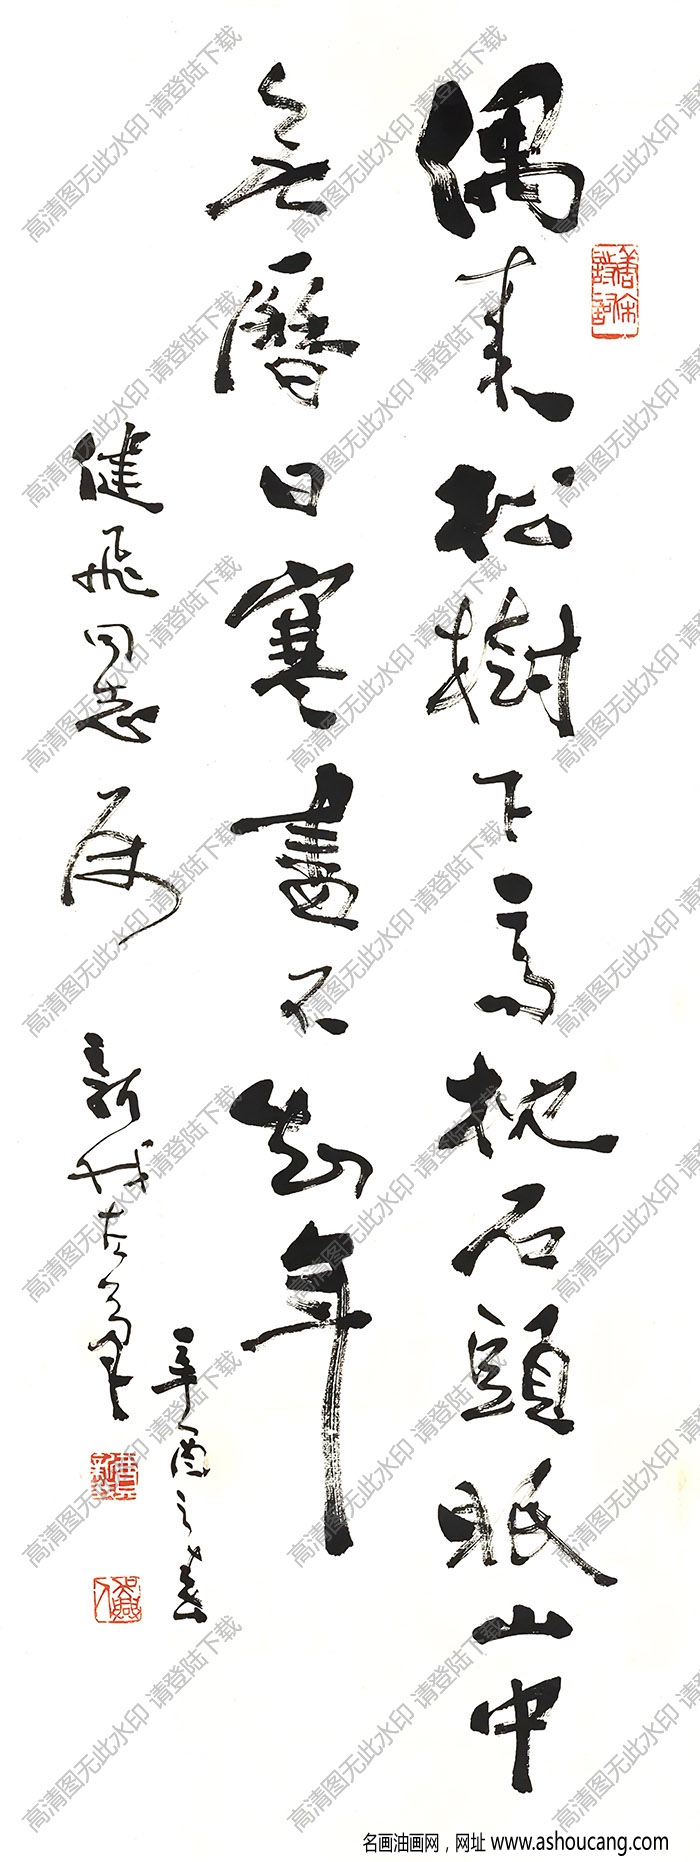 偶来松樹下高枕石頭眠山中
無曆日寒盡不知年
健飛同志屬
辛酉之春
名画油画网，网址 www.ashoucang.com
高清图无此水印 请登陆下载